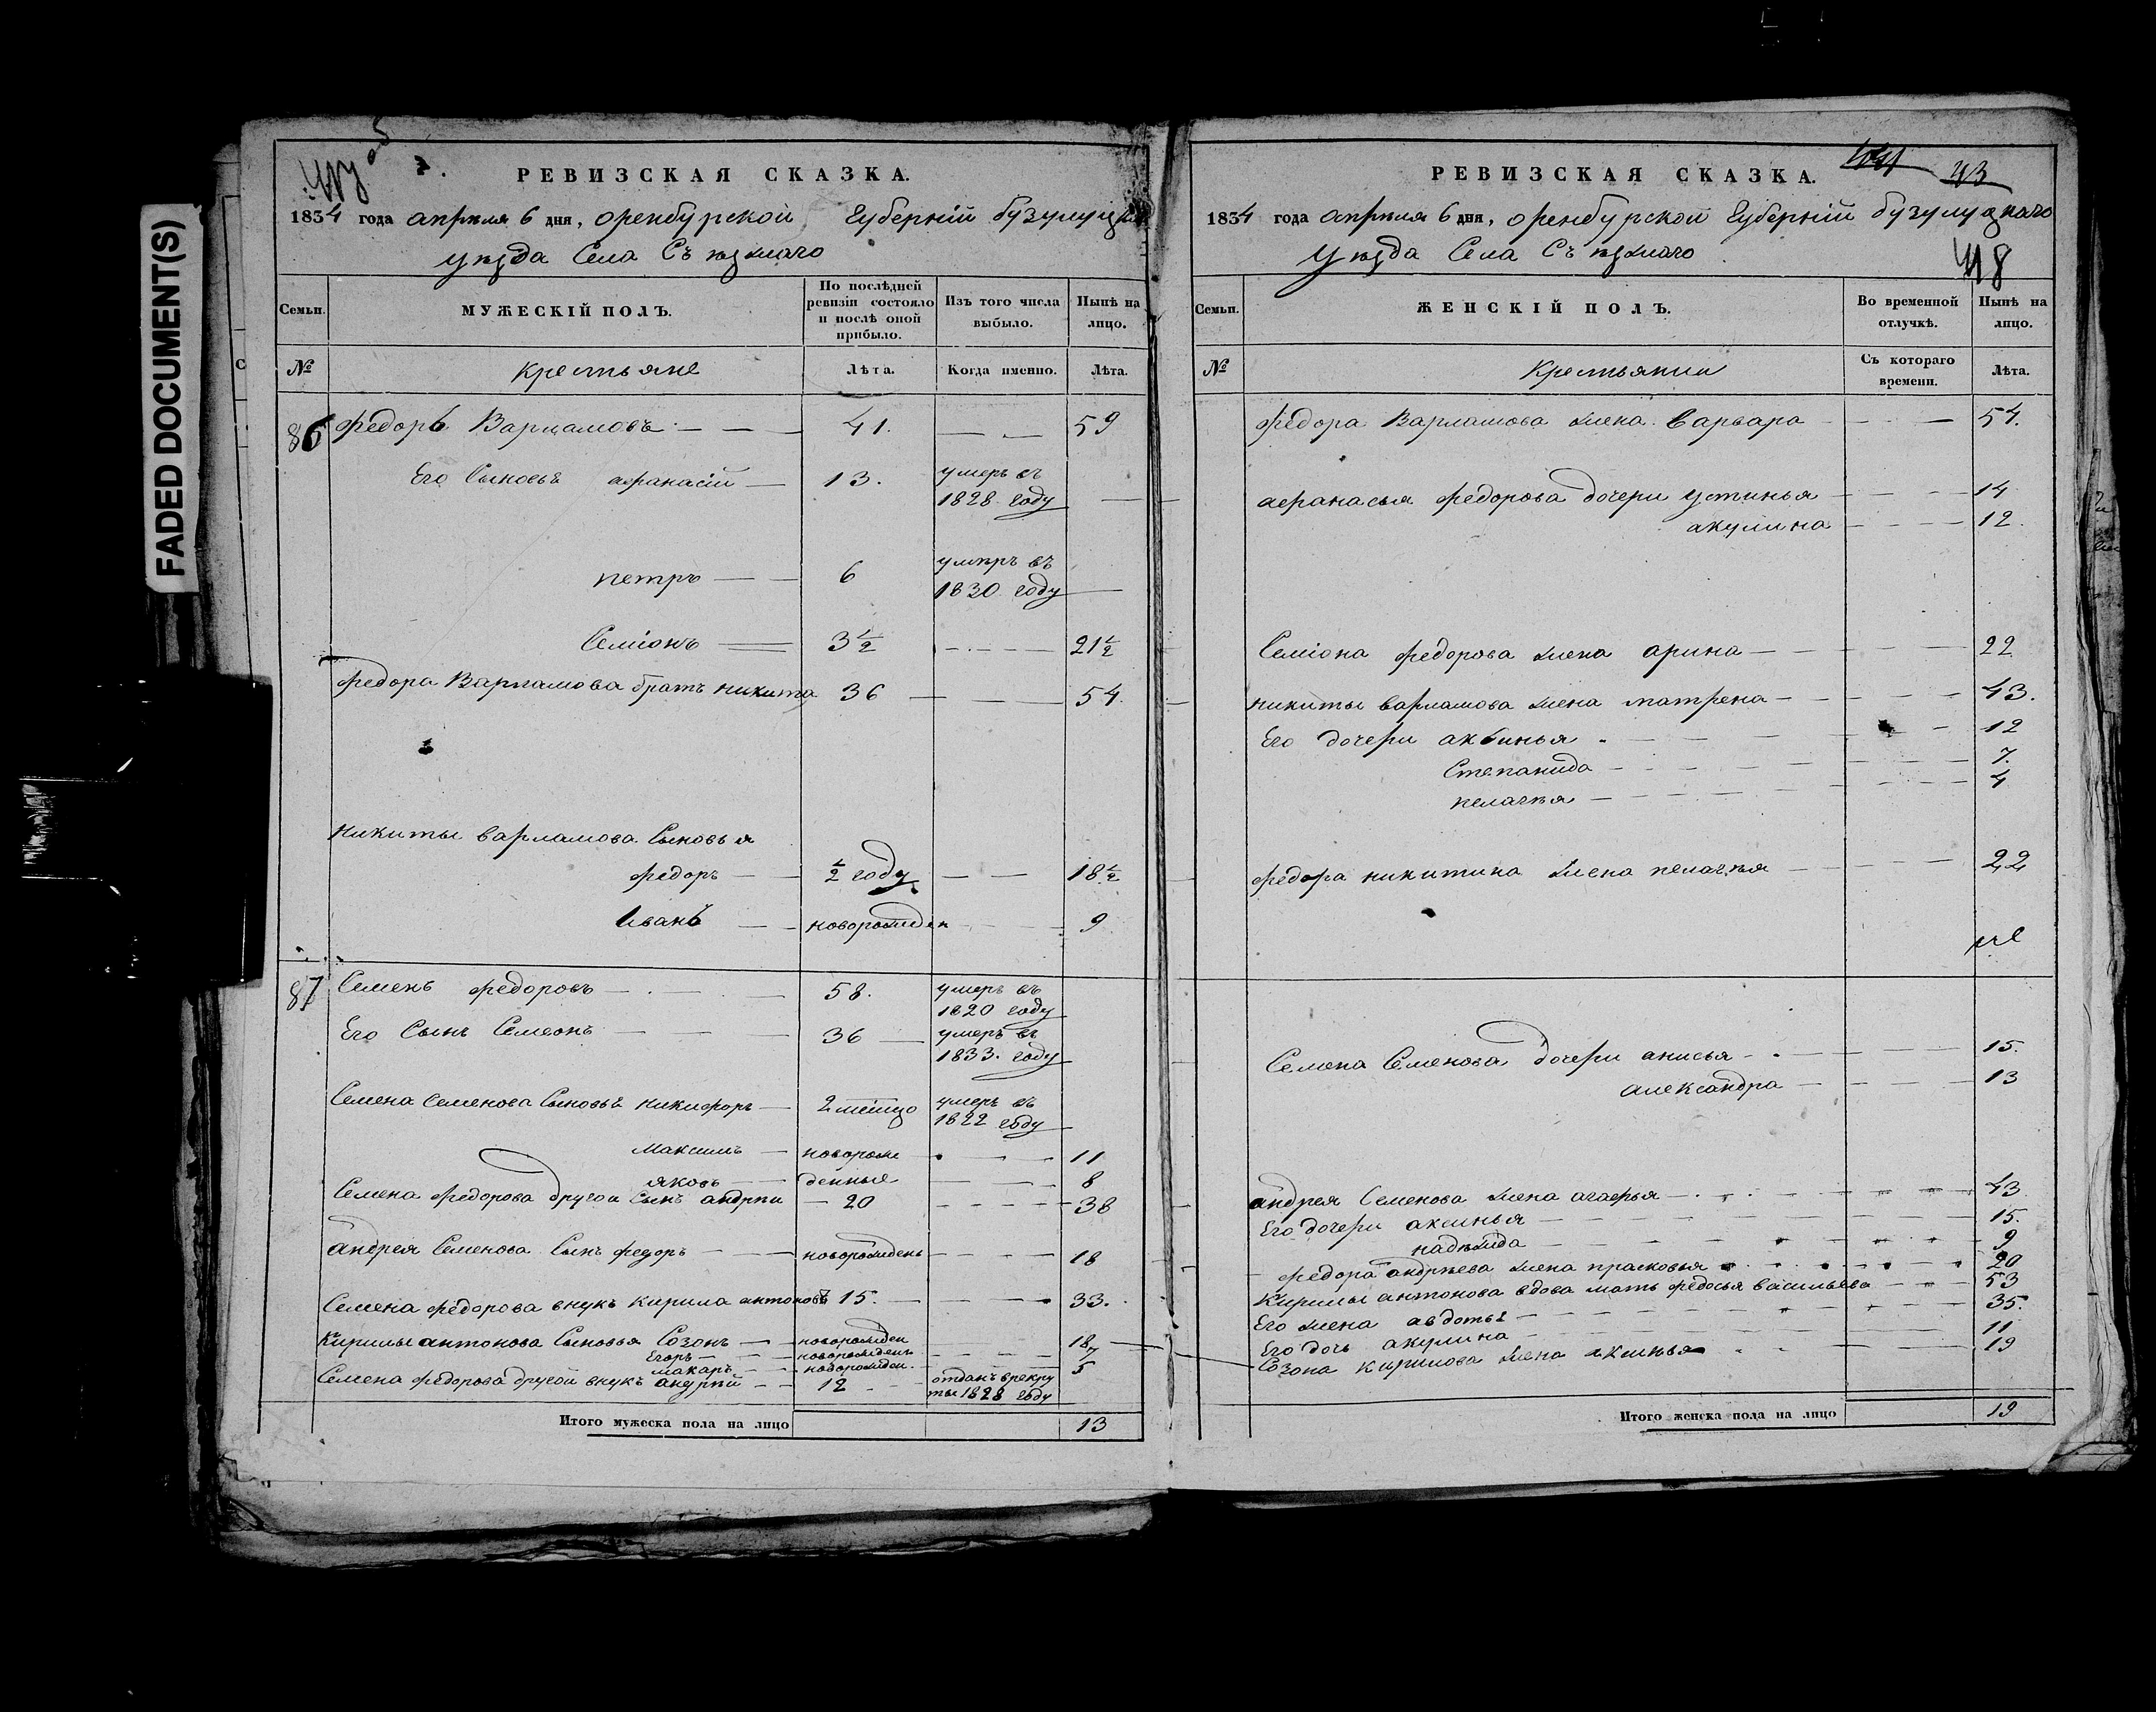 FADED DOCUMENT(S)
об
РЕВИЗСКАЯ СКАЗКА.
1834 года апрѣля 6 дня, оренбурской Губерніи бузулуцкаго
уѣзда Села Съѣзжаго
Семьи.
МУЖЕСКІЙ ПОЛЪ.
По послѣдней ревизіи состояло и послѣ оной прибыло.
Изъ того числа выбыло.
Нынѣ на лицо.
№
крестьяне
Лѣта.
Когда именно.
Лѣта.
86 Федоръ Варламовъ — — — 41. — — 59
Его Сыновья афанасій — 13. умеръ въ 1828 году —
петръ — — 6 умѣръ въ 1830 году —
Семіонъ — 3 1/2 - - - - 21 1/2
Федора Варламова братъ никита 36 — — — 54.
никиты варламова Сыновья
федоръ — — 1/2 году — — 18 1/2
Иванъ — — новорожден - - - 9
87 Семенъ федоровъ — . — . — 58. умеръ въ 1820 году
Его Сынъ Семеонъ — — 36 — умеръ въ 1833. году
Семена Семенова Сыновьѣ никифоръ — 2 месяцо умеръ въ 1822 году
Максимъ — новорож — — 11
яковъ — денные — — 8
Семена федорова другой сынъ андрѣи — 20 - - - - 38
андрея Семенова Сынъ федоръ — — новорожденъ - - - 18
Семена федорова внукъ Кирила антоновъ 15. — — — 33.
Кирилы антонова Сыновья Созонъ — — новорожден — — 18
Егоръ — — новорожденъ - - - 7
макаръ — — новорожден. — — 5
Семена федорова другой внукъ андрѣй — — 12 - - отданъ врекруты 1828 году
Итого мужеска пола на лицо 13
43
РЕВИЗСКАЯ СКАЗКА.
1834 года апрѣля 6 дня, оренбурской Губерніи бузулуцкаго
Уѣзда Села Съѣзжаго
48
Семьи.
ЖЕНСКІЙ ПОЛЪ.
Во временной отлучкѣ.
Нынѣ на лицо.
№
Крестьянки
Съ котораго времени.
Лѣта.
федора Варламова жена Варвара - — - — 54.
афанасья федорова дочери устинья — — — 14
акулина — — — 12.
Семіона федорова жена арина — — — — 22
никиты варламова жена матрена — — — — 43.
Его дочери аксинья — — — — 12
Степанида — — — — 7.
пелагѣя — — — — 4
федора никитина жена пелагѣя — — — 22
Семена Семенова дочери анисья — — — 15.
александра — — — 13
андрея Семенова жена агафья — — — — 43
Его дочери аксинья — — — — 15.
надѣжда — — — — 9
федора андрѣева жена прасковья — — — 20
Кирилы антонова вдова мать федосья васильева — — — 53
Его жена авдотьѣ — — — 35.
Его дочь акулина — — — 11
Созона кирилова жена аксинья — — — 19
Итого женска пола на лицо 19